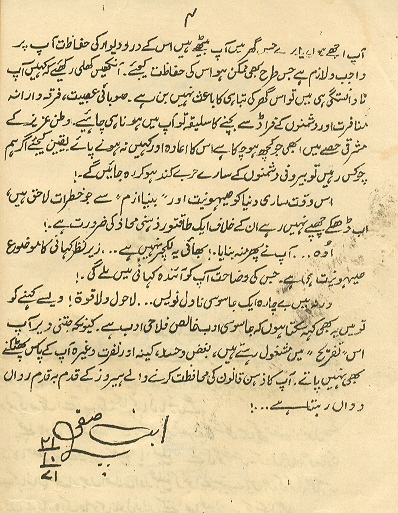 ۷
آپ اچھے ہوں یا برے جس گھر میں آپ بیٹھے ہیں اس کے در و دیوار کی حفاظت آپ پر
واجب و لازم ہے جس طرح بھی ممکن ہو اس کی حفاظت کیجئے۔ آنکھیں کھلی رکھیئے کہ کہیں آپ
نادانستگی ہی میں تو اس گھر کی تباہی کا باعث نہیں بن رہے۔ صوبائی عصبیت، فرقہ وارانہ
منافرت اور دشمنوں کے فراڈ سے بچنے کا سلیقہ تو آپ میں ہونا ہی چاہئیے۔ وطن عزیز کے
مشرقی حصے میں ابھی جو کچھ ہو چکا ہے اس کا اعادہ اور کہیں نہ ہونے پائے یقین کیجئے اگر ہم
چوکس رہیں تو بیرونی دشمنوں کے سارے حربے کند ہو کر رہ جائیں گے۔!
اس وقت ساری دنیا کو صیہونیت اور "ہپّیازم" سے جو خطرات لاحق ہیں،
اب ڈھکے چھپے نہیں رہے ان کے خلاف ایک طاقتور ذہنی محاذ کی ضرورت ہے۔!
اُوہ... آپ نے پھر منہ بنایا۔! بھائی یہ لکچر نہیں ہے... زیر نظر کہانی کا موضوع
صیہونیت ہی ہے۔ جس کی وضاحت آپ کو آئندہ کہانی میں ملے گی۔!
ورنہ میں بے چارہ ایک جاسوسی ناول نویس... لاحول ولا قوة! ویسے کہنے کو
تو میں یہ بھی کہہ سکتا ہوں کہ جاسوسی ادب خالص فلاحی ادب ہے۔ کیونکہ جتنی دیر آپ
اس "تفریح" میں مشغول رہتے ہیں، بغض و حسد، کینہ اور نفرت وغیرہ آپ کے پاس پھٹکنے
بھی نہیں پاتے۔ آپ کا ذہن قانون کی محافظت کرنے والے ہیروز کے قدم بہ قدم رواں
دواں رہتا ہے...!
ابن صفی
۲۱
۱۰
۷۱